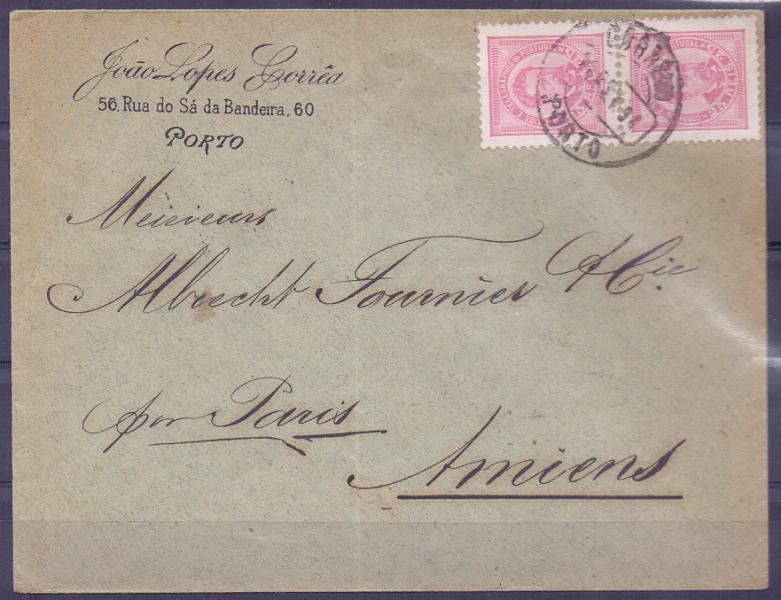 João Lopes Corrêa
56, Rua do Sá da Bandeira, 60
PORTO
CORREIO
PORTO
Messieurs
Albrecht Fournier & Cie
par Paris
Amiens